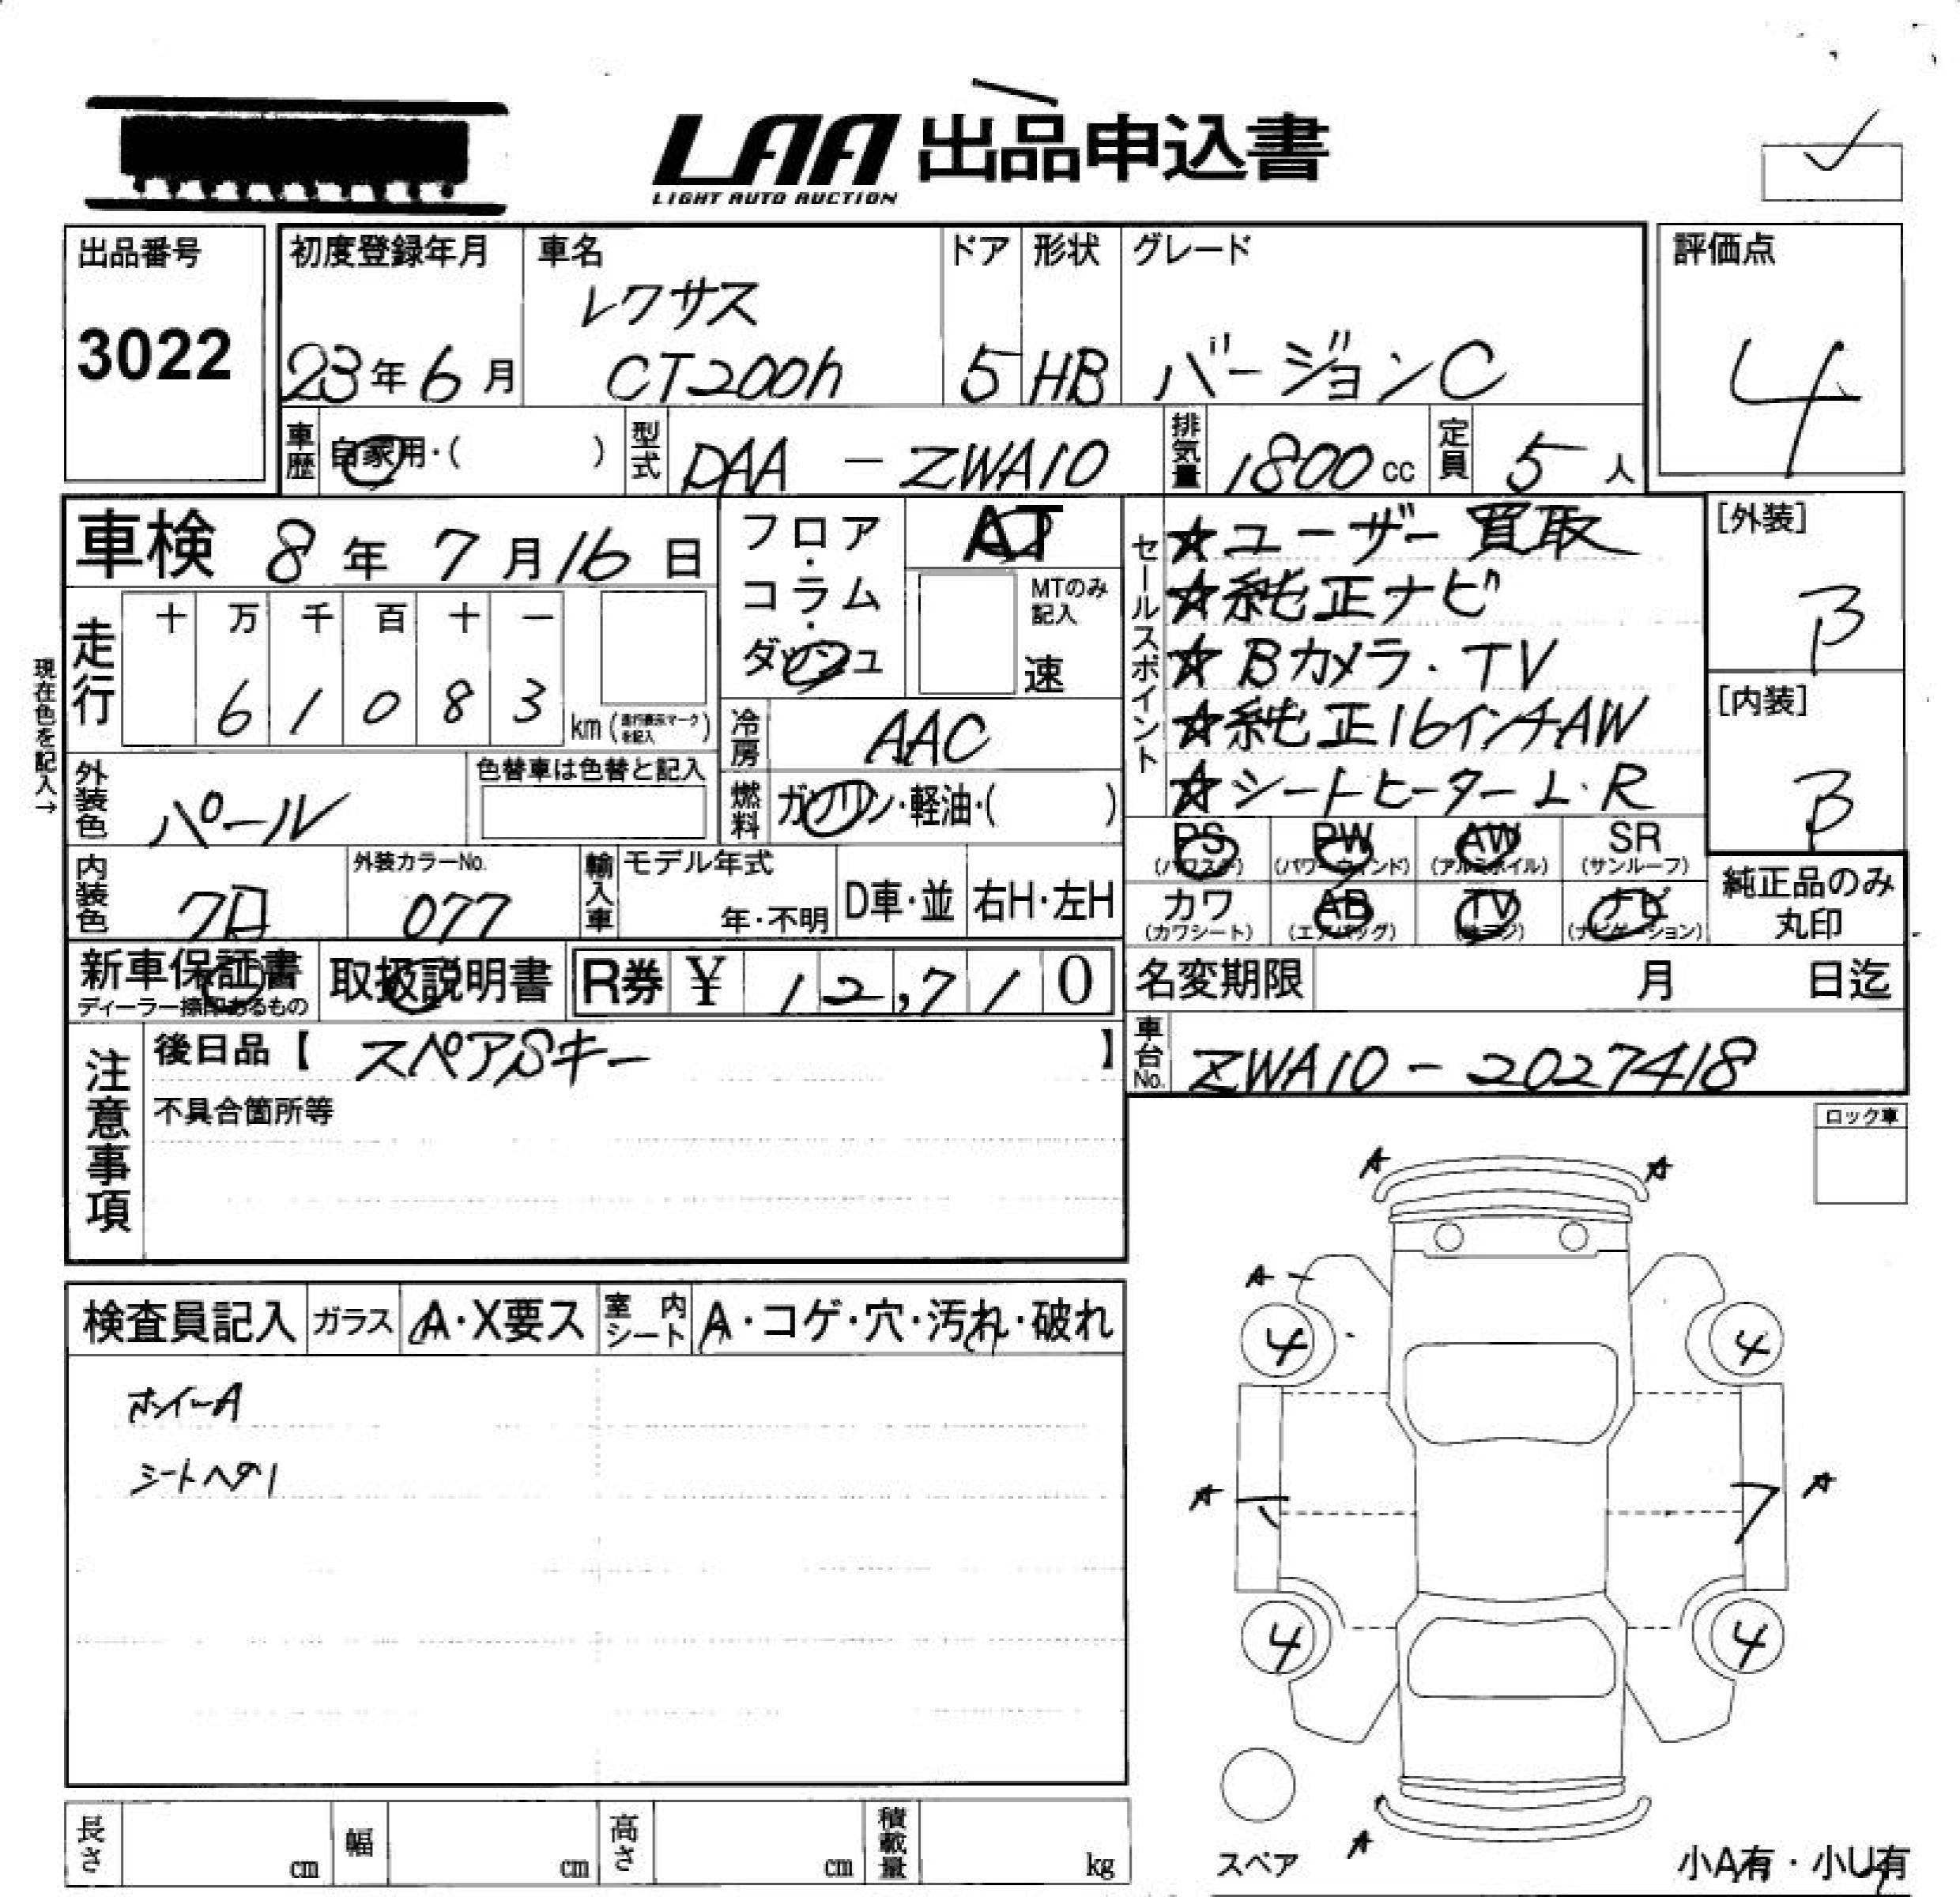 LAA 出品申込書
LIGHT AUTO AUCTION
出品番号
3022
初度登録年月
23年6月
車名
レクサス
CT200h
ドア
5
形状
HB
グレード
バージョンC
評価点
4
車歴 自家用・( )
型式 DAA - ZWA10
排気量 1800 cc
定員 5 人
車検 8年 7月16日
フロア・コラム・ダッシュ
AT
MTのみ記入
速
セールスポイント
☆ユーザー買取
☆純正ナビ
☆Bカメラ・TV
☆純正16インチAW
☆シートヒーターL・R
[外装]
B
[内装]
B
現在色を記入→
走行
十 万 千 百 十 一
6 1 0 8 3
km (走行表示マークを記入)
冷房 AAC
燃料 ガソリン・軽油・( )
外装色 パール
色替車は色替と記入
内装色 クロ
外装カラーNo.
077
輸入車
モデル年式
年・不明
D車・並
右H・左H
PS
(パワステ)
PW
(パワーウィンド)
AW
(アルミホイル)
SR
(サンルーフ)
カワ
(カワシート)
AB
(エアバッグ)
TV
ナビ
(ナビゲーション)
純正品のみ
丸印
新車保証書
ディーラー捺印あるもの
取扱説明書
R券 ¥ 12,710
名変期限 月 日迄
車台No. ZWA10-2027418
注意事項
後日品【 スペアSキー 】
不具合箇所等
ロック車
検査員記入
ガラス A・X要ス
室内シート A・コゲ・穴・汚れ・破れ
ホイーA
シートヘタリ
A A
A
4 4
A A
4 4
A
スペア
小A有・小U有
長さ cm
幅 cm
高さ cm
積載量 kg